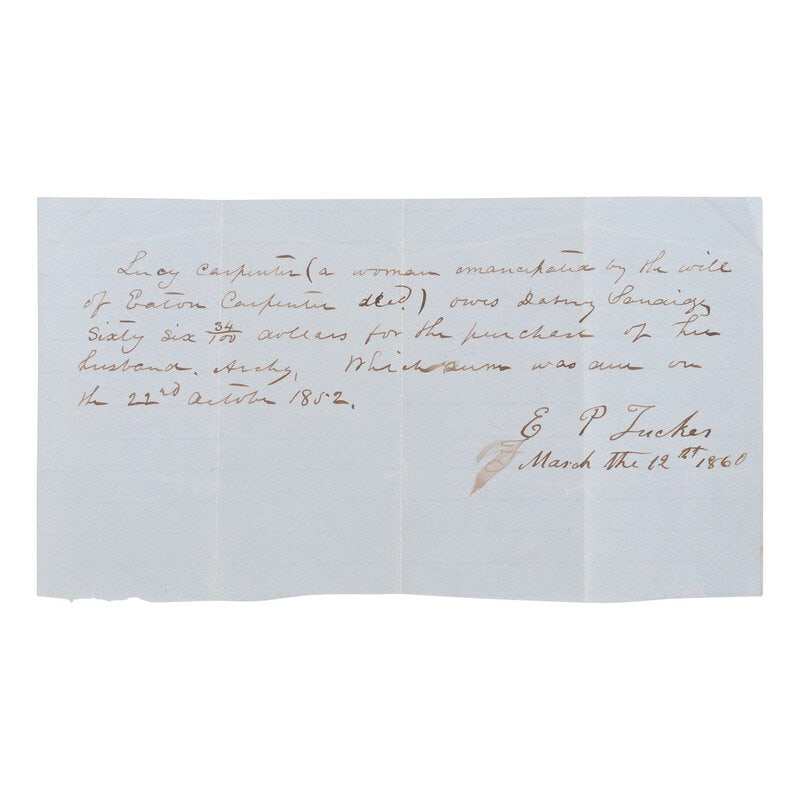 Lucy Carpenter (a woman emancipated by the will
of Eaton Carpenter decd.) owes Dabney
Sixty six 34/100 dollars for the purchase of her
husband. Archy, Which sum was due on
the 22nd October 1852.
E P Tucker
March the 12th 1860